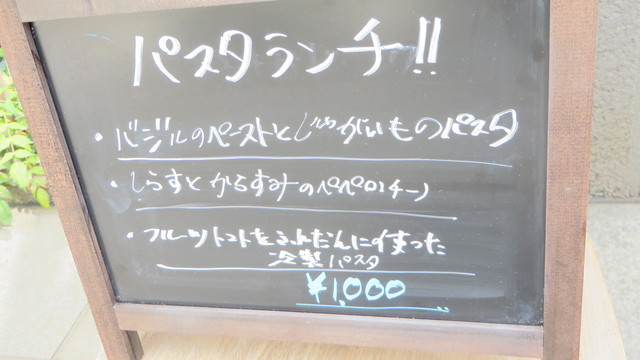 パスタランチ!!
・バジルのペーストとじゃがいものパスタ
・しらすとからすみのペペロンチーノ
・フルーツトマトをふんだんに使った
冷製パスタ
¥1,000